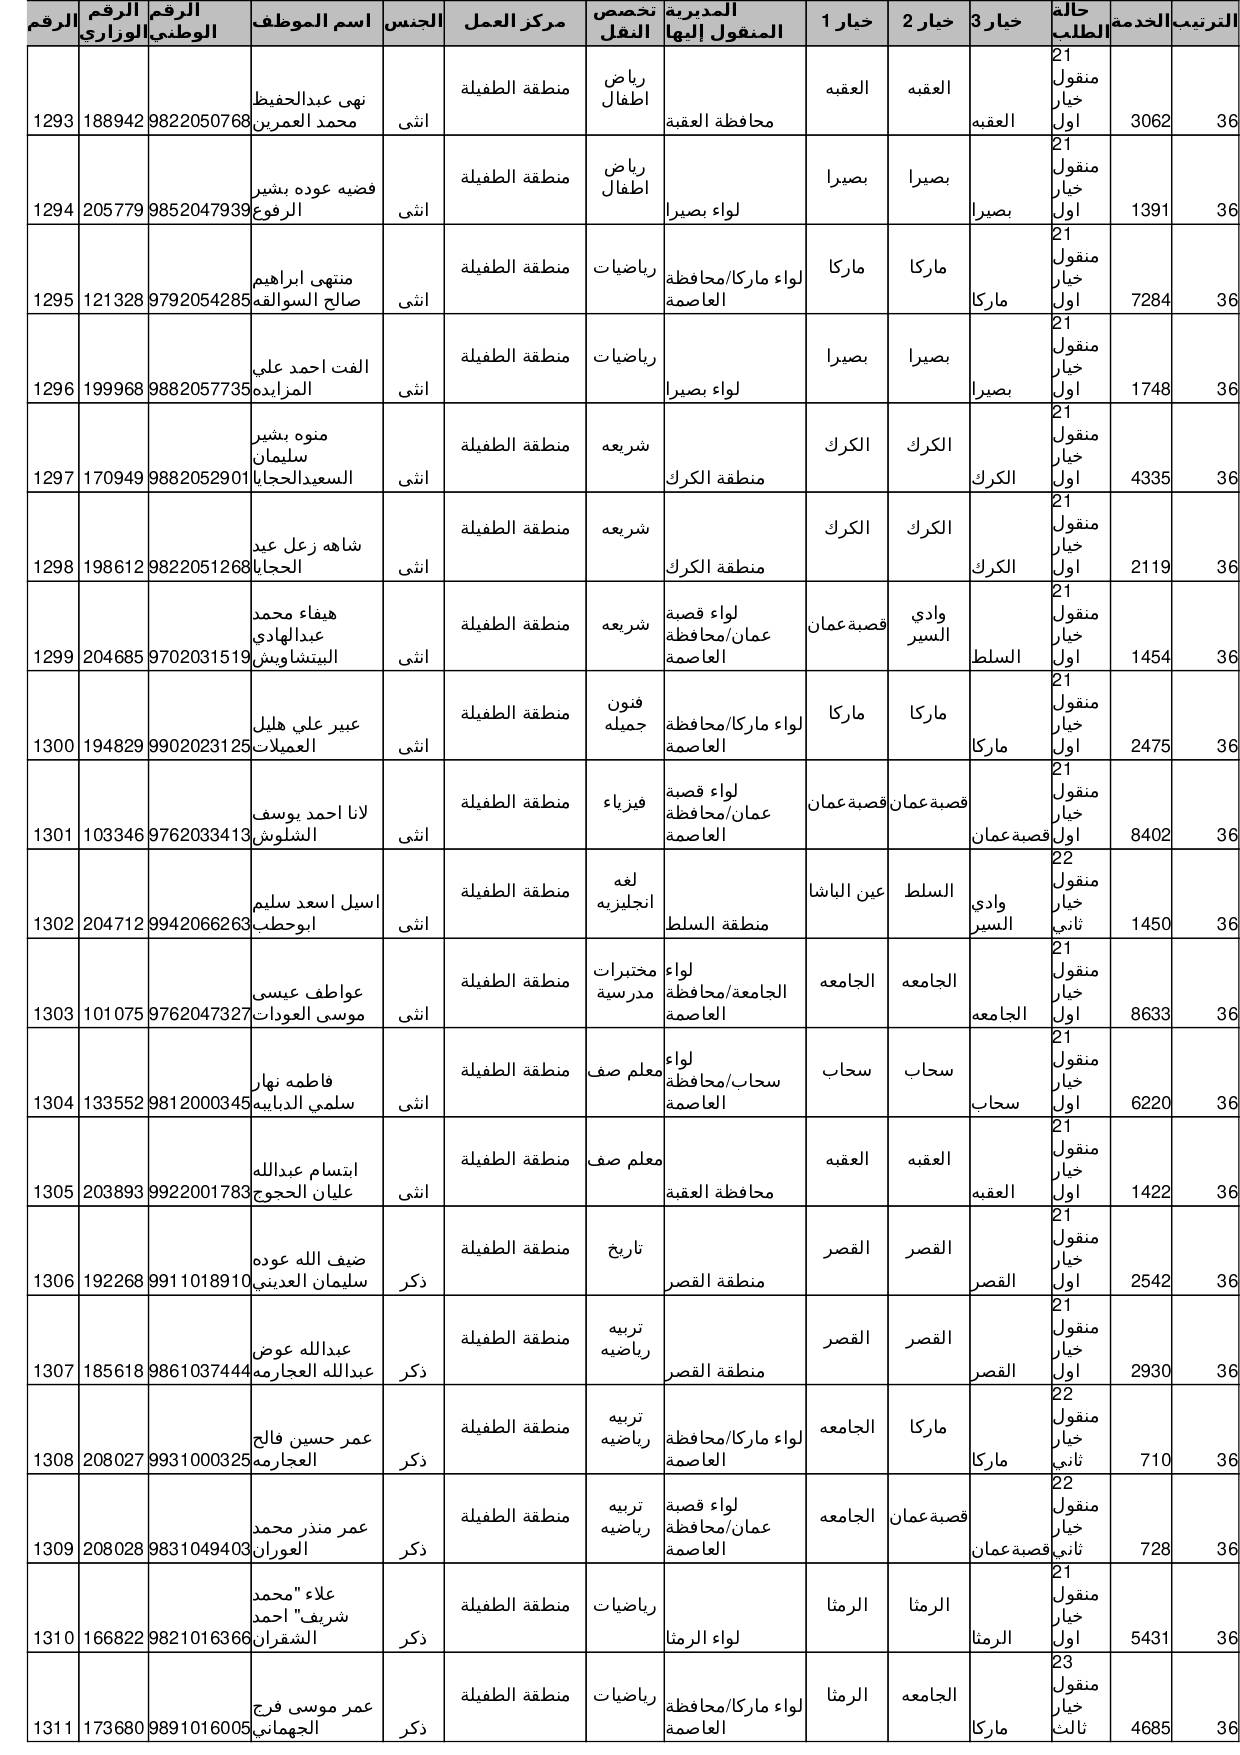 الرقم الرقم الوزاري الرقم الوطني اسم الموظف الجنس مركز العمل تخصص النقل المديرية المنقول إليها خيار 1 خيار 2 خيار 3 حالة الطلب الخدمة الترتيب
1293 188942 9822050768 نهى عبدالحفيظ محمد العمرين انثى منطقة الطفيلة رياض اطفال محافظة العقبة العقبه العقبه العقبه 21 منقول خيار اول 3062 36
1294 205779 9852047939 فضيه عوده بشير الرفوع انثى منطقة الطفيلة رياض اطفال لواء بصيرا بصيرا بصيرا بصيرا 21 منقول خيار اول 1391 36
1295 121328 9792054285 منتهى ابراهيم صالح السوالقه انثى منطقة الطفيلة رياضيات لواء ماركا/محافظة العاصمة ماركا ماركا ماركا 21 منقول خيار اول 7284 36
1296 199968 9882057735 الفت احمد علي المزايده انثى منطقة الطفيلة رياضيات لواء بصيرا بصيرا بصيرا بصيرا 21 منقول خيار اول 1748 36
1297 170949 9882052901 منوه بشير سليمان السعيدالحجايا انثى منطقة الطفيلة شريعه منطقة الكرك الكرك الكرك الكرك 21 منقول خيار اول 4335 36
1298 198612 9822051268 شاهه زعل عيد الحجايا انثى منطقة الطفيلة شريعه منطقة الكرك الكرك الكرك الكرك 21 منقول خيار اول 2119 36
1299 204685 9702031519 هيفاء محمد عبدالهادي البيتشاويش انثى منطقة الطفيلة شريعه لواء قصبة عمان/محافظة العاصمة قصبةعمان وادي السير السلط 21 منقول خيار اول 1454 36
1300 194829 9902023125 عبير علي هليل العميلات انثى منطقة الطفيلة فنون جميله لواء ماركا/محافظة العاصمة ماركا ماركا ماركا 21 منقول خيار اول 2475 36
1301 103346 9762033413 لانا احمد يوسف الشلوش انثى منطقة الطفيلة فيزياء لواء قصبة عمان/محافظة العاصمة قصبةعمان قصبةعمان قصبةعمان 21 منقول خيار اول 8402 36
1302 204712 9942066263 اسيل اسعد سليم ابوحطب انثى منطقة الطفيلة لغه انجليزيه منطقة السلط عين الباشا السلط وادي السير 22 منقول خيار ثاني 1450 36
1303 101075 9762047327 عواطف عيسى موسى العودات انثى منطقة الطفيلة مختبرات مدرسية لواء الجامعة/محافظة العاصمة الجامعه الجامعه الجامعه 21 منقول خيار اول 8633 36
1304 133552 9812000345 فاطمه نهار سلمي الدبايبه انثى منطقة الطفيلة معلم صف لواء سحاب/محافظة العاصمة سحاب سحاب سحاب 21 منقول خيار اول 6220 36
1305 203893 9922001783 ابتسام عبدالله عليان الحجوج انثى منطقة الطفيلة معلم صف محافظة العقبة العقبه العقبه العقبه 21 منقول خيار اول 1422 36
1306 192268 9911018910 ضيف الله عوده سليمان العديني ذكر منطقة الطفيلة تاريخ منطقة القصر القصر القصر القصر 21 منقول خيار اول 2542 36
1307 185618 9861037444 عبدالله عوض عبدالله العجارمه ذكر منطقة الطفيلة تربيه رياضيه منطقة القصر القصر القصر القصر 21 منقول خيار اول 2930 36
1308 208027 9931000325 عمر حسين فالح العجارمه ذكر منطقة الطفيلة تربيه رياضيه لواء ماركا/محافظة العاصمة الجامعه ماركا ماركا 22 منقول خيار ثاني 710 36
1309 208028 9831049403 عمر منذر محمد العوران ذكر منطقة الطفيلة تربيه رياضيه لواء قصبة عمان/محافظة العاصمة الجامعه قصبةعمان قصبةعمان 22 منقول خيار ثاني 728 36
1310 166822 9821016366 علاء "محمد شريف" احمد الشقران ذكر منطقة الطفيلة رياضيات لواء الرمثا الرمثا الرمثا الرمثا 21 منقول خيار اول 5431 36
1311 173680 9891016005 عمر موسى فرج الجهماني ذكر منطقة الطفيلة رياضيات لواء ماركا/محافظة العاصمة الرمثا الجامعه ماركا 23 منقول خيار ثالث 4685 36